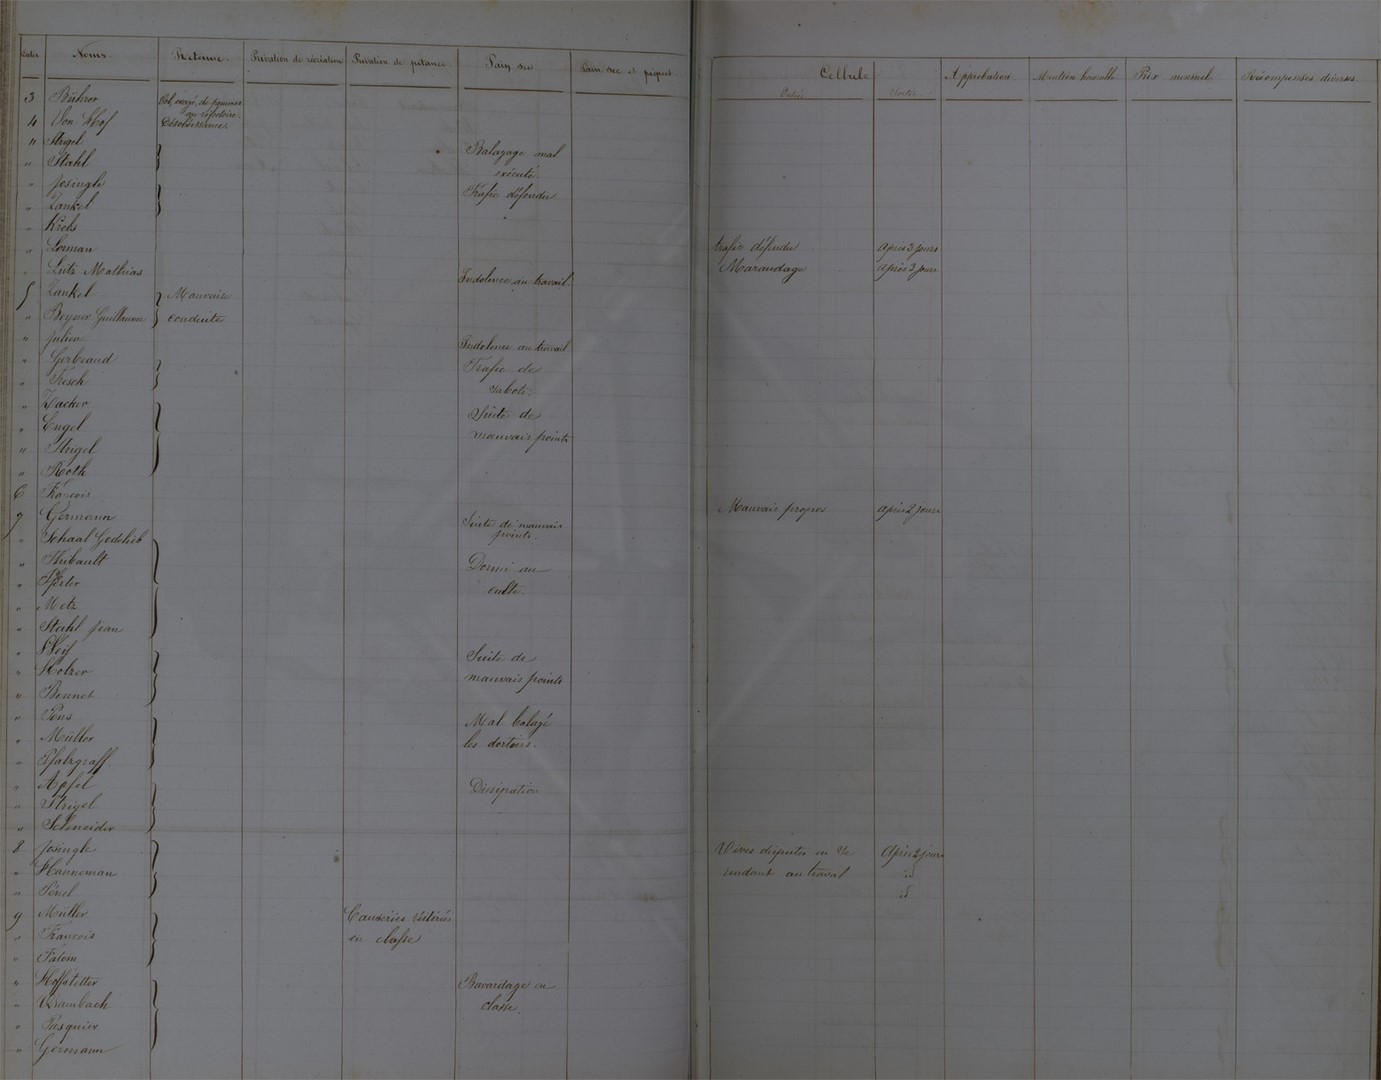 Dates Noms Retenue Privation de récréation Privation de pitance Pain sec Pain sec et piquet Cellule Approbation Mention honorable Prix mensuel Récompenses diverses
Entrée Sortie
3 Bührer Vol, exagé, de pommes
au réfectoire.
4 Von Hof Désobéissance.
" Strigel Balayage mal
" Stahl exécuté.
" Josingle Trafic défendu
" Zankel
" Krebs
" Lorman trafic défendu après 3 jours
" Lutz Mathias Indolence au travail. Maraudage après 3 jours
5 Zankel Mauvaise
" Beyner Guillaume conduite
" Julien Indolence au travail
" Gerbeaud Trafic de
" Fresch sabots.
" Zacker Suite de
" Engel mauvais points
" Strigel
" Roth
6 François Mauvais propos après 2 jours
7 Germann Suite de mauvais
points.
" Schaal Godelieb
" Thibault Dormi au
" culte.
" Metz
" Stahl Jean
"
" Holzer Suite de
" Bonnet mauvais points
" Pons Mal balayé
" Müller les dortoirs.
" Pfalzgraff
" Apfel Dissipation
" Strigel
" Schneider
8 Josingle Vives disputes en se Après 2 jours
" Hanneman rendant au travail id
" Pénel id
9 Müller Causeries réitérées
" François en classe
" Falom
" Hoffstetter Bavardage en
" Krambach classe.
" Pasquier
" Germann